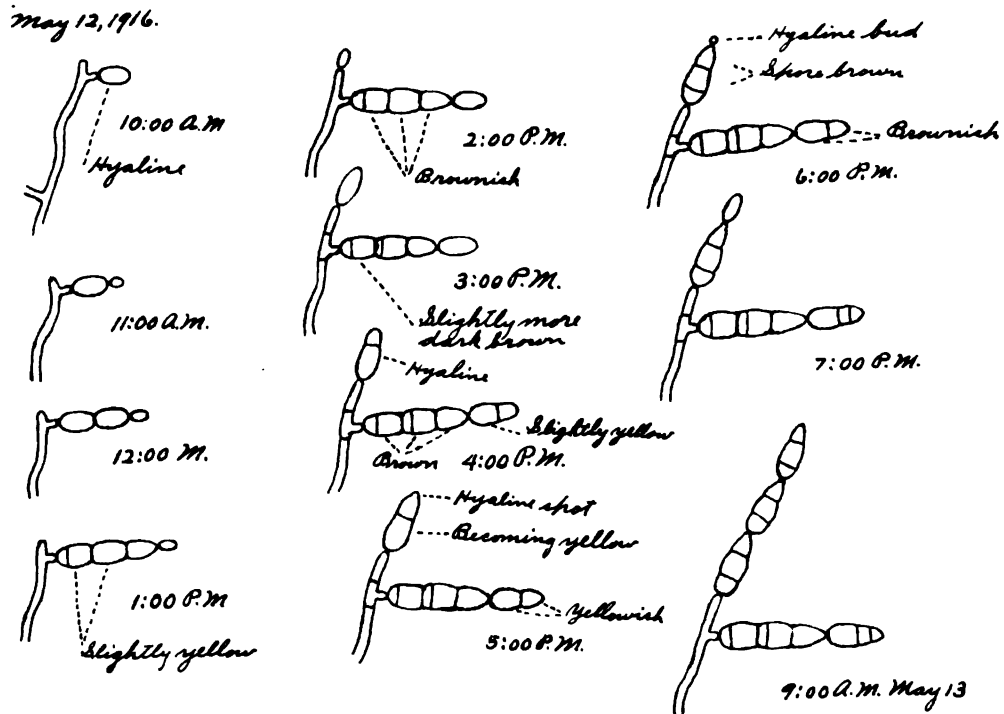 May 12, 1916.
10:00 A.M
Hyaline
11:00 A.M.
12:00 M.
1:00 P.M
Slightly yellow
2:00 P.M.
Brownish
3:00 P.M.
Slightly more
dark brown
Hyaline
Slightly yellow
Brown
4:00 P.M.
Hyaline spot
Becoming yellow
Yellowish
5:00 P.M.
Hyaline bud
Spore brown
Brownish
6:00 P.M.
7:00 P.M.
9:00 A.M. May 13